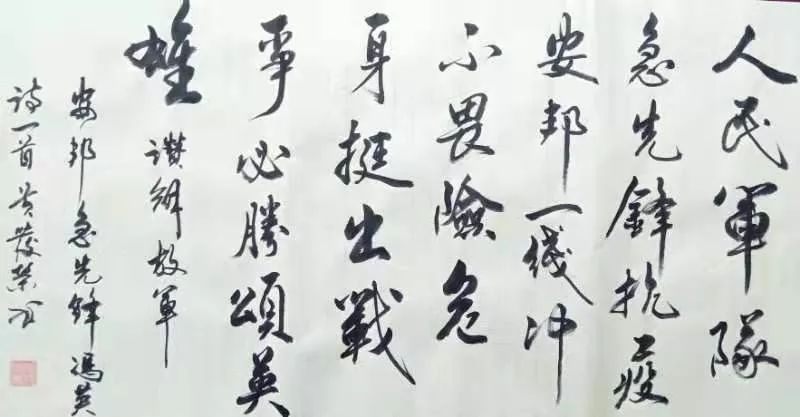 人民軍隊
急先鋒抗疫
安邦一线冲
不畏險危
身挺出戰
爭必勝頌英
雄
讚解放軍
安邦急先鋒馮英
诗一首黄發榮